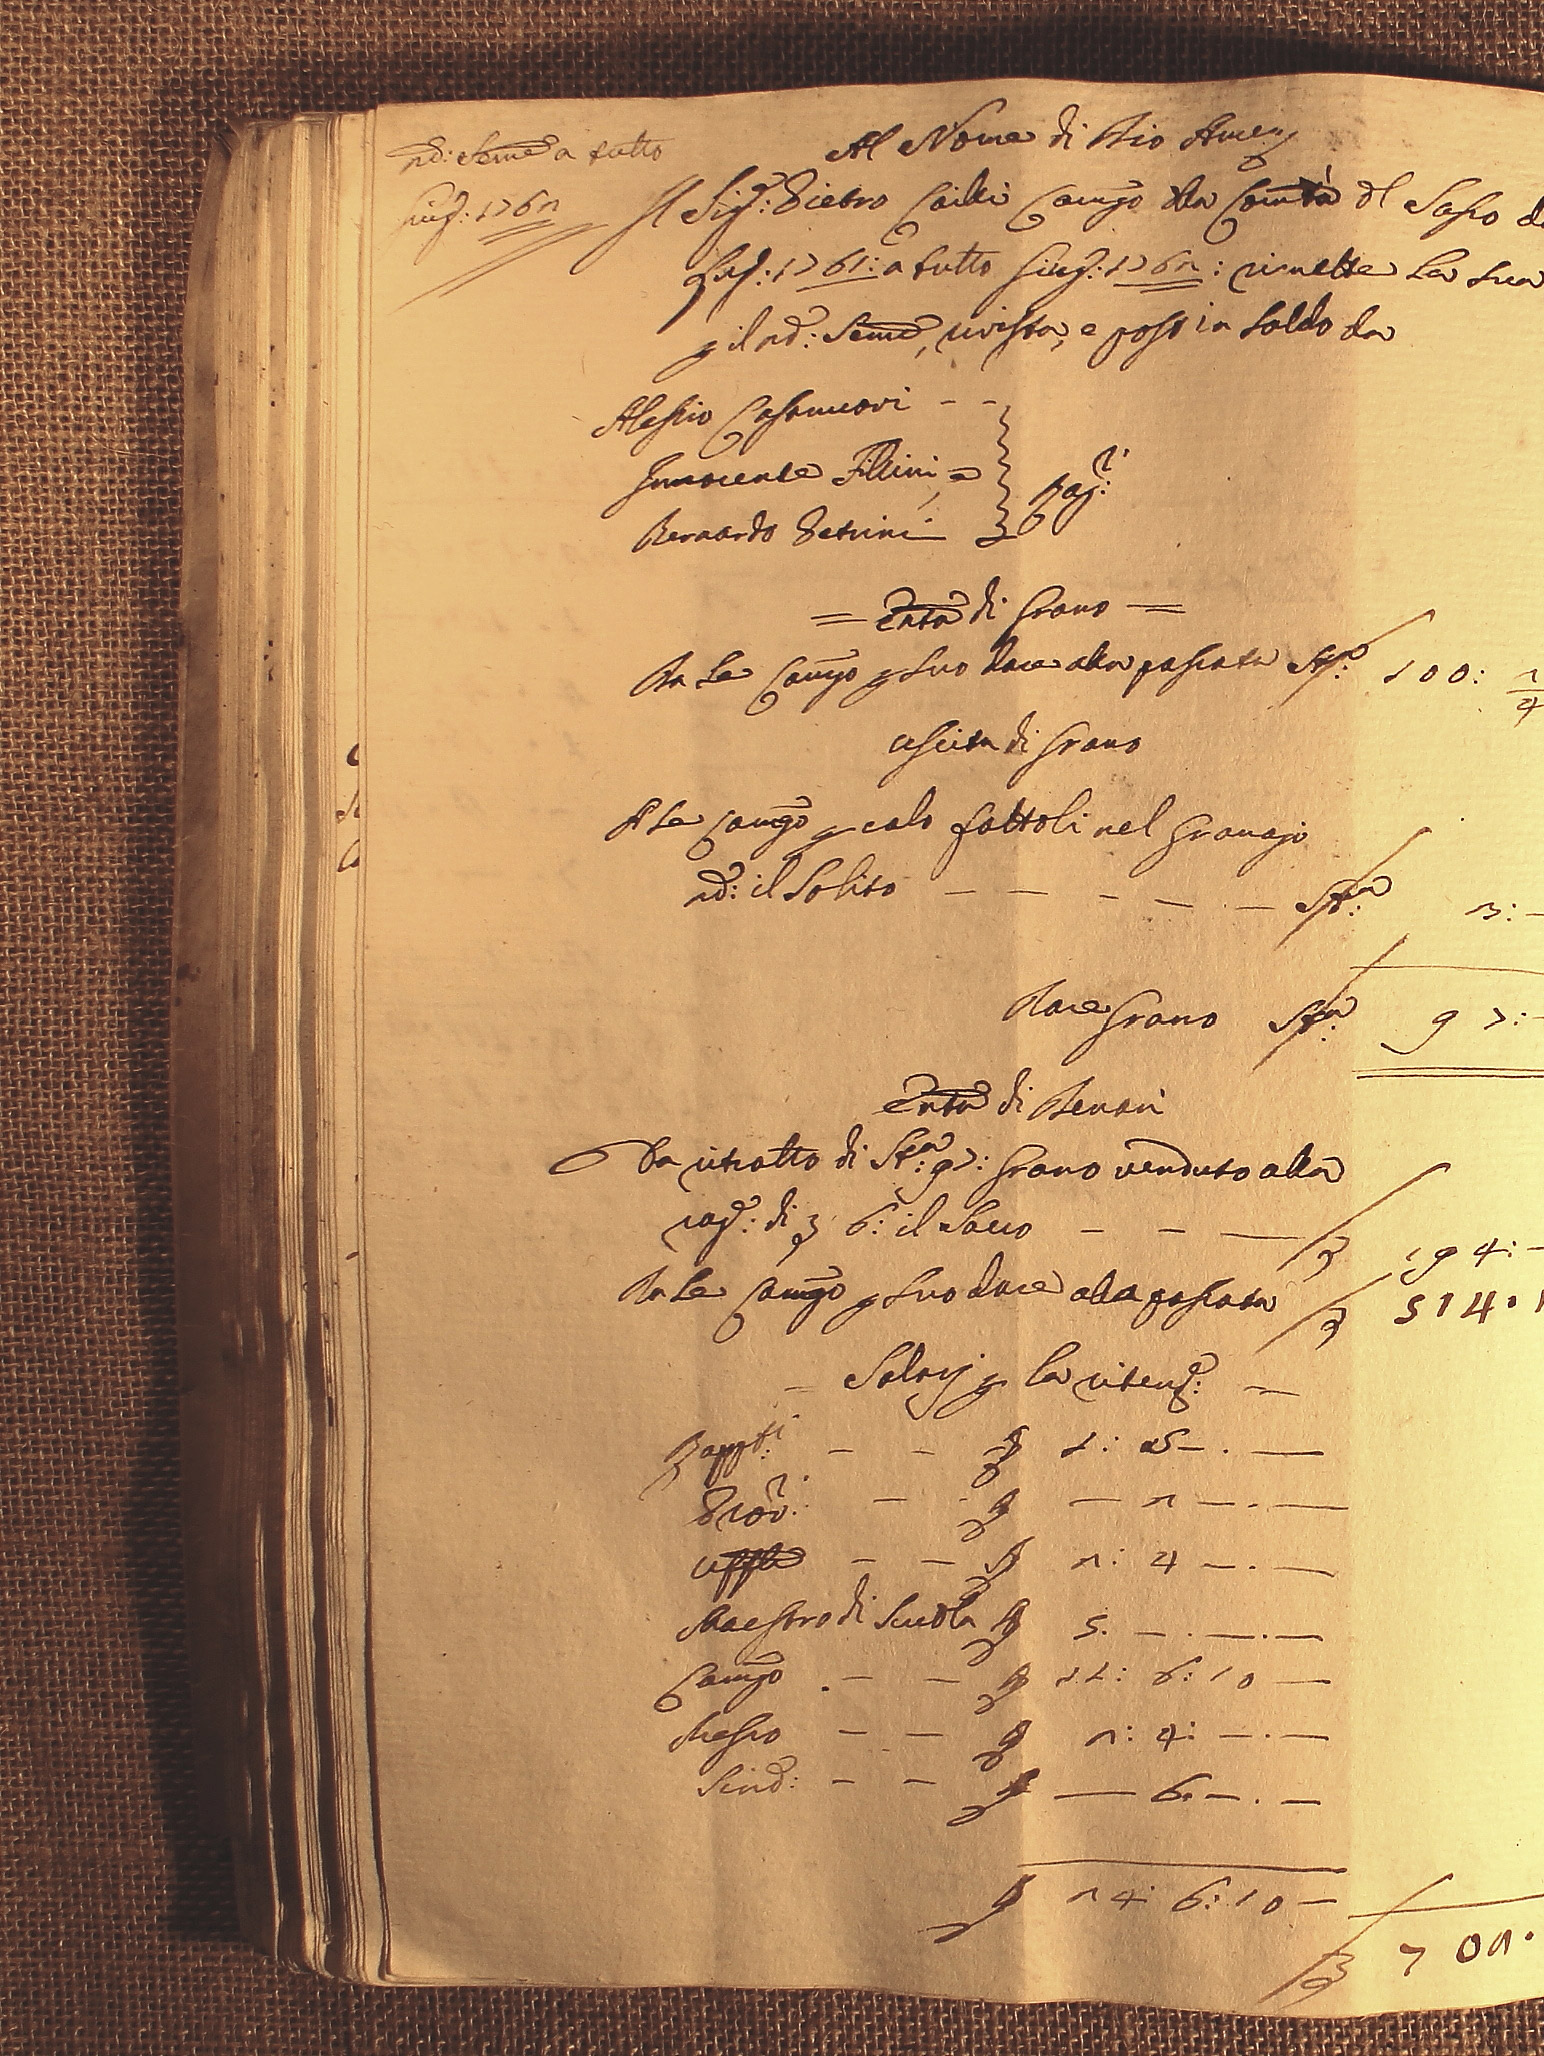 2do: Seme a tutto
Giug: 1762
Al Nome di Dio Amen
Il Sig: Pietro Camgo da Comtà dl Sasso
Lug: 1761: a tutto Giug: 1762: rimette la sua
p il 2do: Seme, rivista, e post in saldo da
Alessio Casanuovi - -
Innocente Fillini, =
Bernardo Petrini
Rag:ri
= Enta di Grano =
Da Le Camgo p suo dare alla passata Sta: 100: 2/4
uscita di Grano
A Le Camgo p calo fattoli nel Granajo
2do: il Solito - - - - - - Sta: 3: -
Dare Grano Sta: 97: -
Enta di Denari
Da ritratto di Sta: 97: Grano venduto alla
rag: di 6: il Sacco - - - 194: -
Da Le Camgo p suo dare alla passata 514.1
- Salarj p la ritenz: -
Rappti: - - 1: 15 - . -
Prov:ri - - - 2 - . -
uffle - - 2: 4 - . -
Maestro di Scuola 5. - . - . -
Camgo . - - 11: 6: 10 -
Messo - - 2: 4: - . -
Sind: - - - 6. - . -
24: 6: 10 -
702.